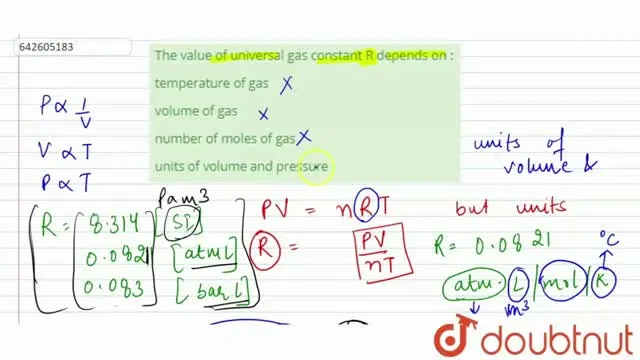 642605183
The value of universal gas constant R depends on :
temperature of gas X
volume of gas X
number of moles of gas X
units of volume and pressure
P ∝ 1/V
V ∝ T
P ∝ T
units of
volume &
but units
Pam3
R = 8.314 [SI]
0.0821 [atm L]
0.083 [bar L]
PV = nRT
R = PV/nT
°C
R = 0.0821
atm. L / mol / K
m3
doubtnut